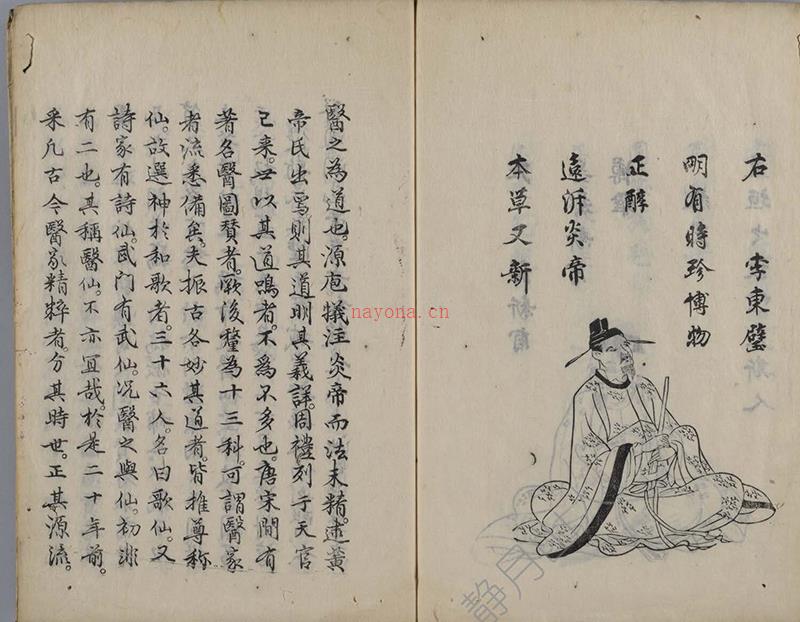 右 李東璧
明有時珍博物
正醇
遠泝炎帝
本草又新
醫之為道也。源庖犠注炎帝而法未精。逮黃
帝氏出焉則其道明其義詳。周禮列于天官
已来。世以其道鳴者。不為不多也。唐宋間有
著名醫圖賛者。厥後釐為十三科。可謂醫家
者流悉備矣。夫振古各妙其道者。皆推尊称
仙。故選神於和歌者。三十六人。名曰歌仙。又
詩家有詩仙。武门有武仙。况醫之與仙。初非
有二也。其稱醫仙。不亦冝哉。於是二十年前。
采凡古今醫家精粹者。分其時世。正其源流。
nayona.cn